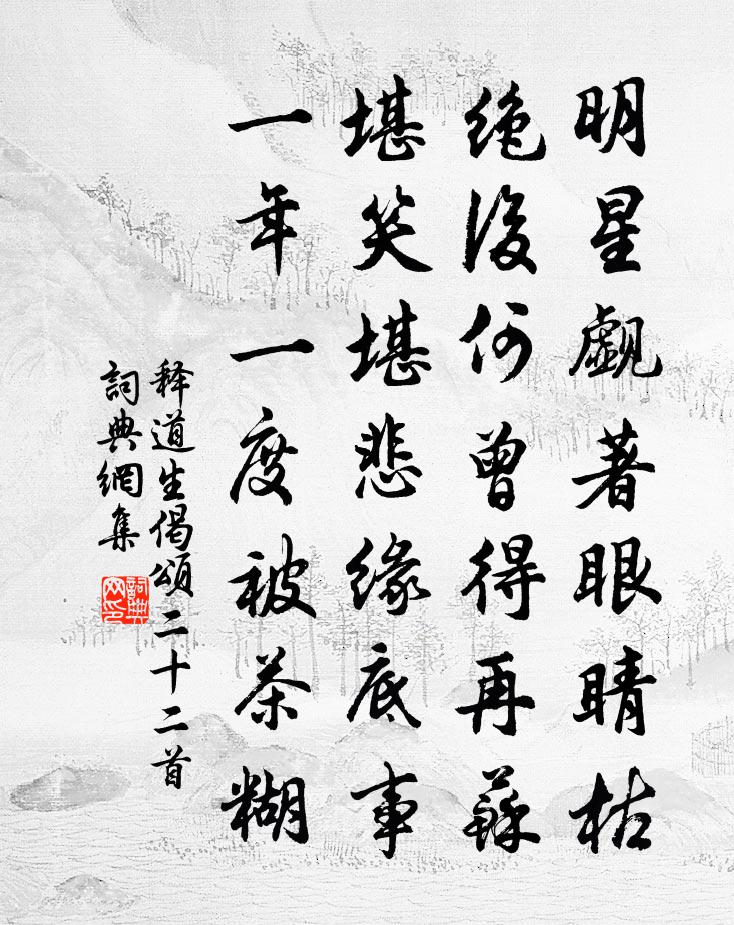 明星觑著眼睛枯
绝後何曾得再蘇
堪笑堪悲緣底事
一年一度被茶糊
释道生偈頌二十二首
詞典網集
詞典